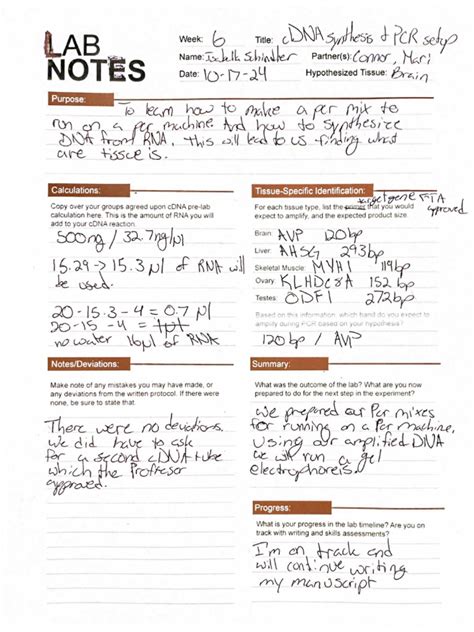 LAB NOTES
Week: 6 Title: cDNA synthesis & PCR setup
Name: Isabella Schindler Partner(s): Connor, Mari
Date: 10-17-24 Hypothesized Tissue: Brain
Purpose:
To learn how to make a pcr mix to
run on a pcr machine. And how to synthesize
DNA from RNA. This will lead to us finding what
are tissue is.
Calculations:
Copy over your groups agreed upon cDNA pre-lab
calculation here. This is the amount of RNA you will
add to your cDNA reaction.
500ng / 32.7ng/µl
15.29 → 15.3 µl of RNA will
be used.
20-15.3-4 = 0.7 µl
20-15-4 =
no water 16µl of RNA
Tissue-Specific Identification:
target gene TA approved
For each tissue type, list the primer that you would
expect to amplify, and the expected product size.
Brain: AVP 120bp
Liver: AHSG 293bp
Skeletal Muscle: MYH1 119bp
Ovary: KLHDC8A 152bp
Testes: ODF1 272bp
Based on this information, which band do you expect to
amplify during PCR based on your hypothesis?
120bp / AVP
Notes/Deviations:
Make note of any mistakes you may have made, or
any deviations from the written protocol. If there were
none, be sure to state that.
There were no deviations.
We did have to ask
for a second cDNA tube
which the Proffesor
approved.
Summary:
What was the outcome of the lab? What are you now
prepared to do for the next step in the experiment?
We prepared our Pcr mixes
for running on a Pcr machine,
Using our amplified DNA
we will run a gel
electrophoreis.
Progress:
What is your progress in the lab timeline? Are you on
track with writing and skills assessments?
I'm on track and
will continue writing
my manuscript